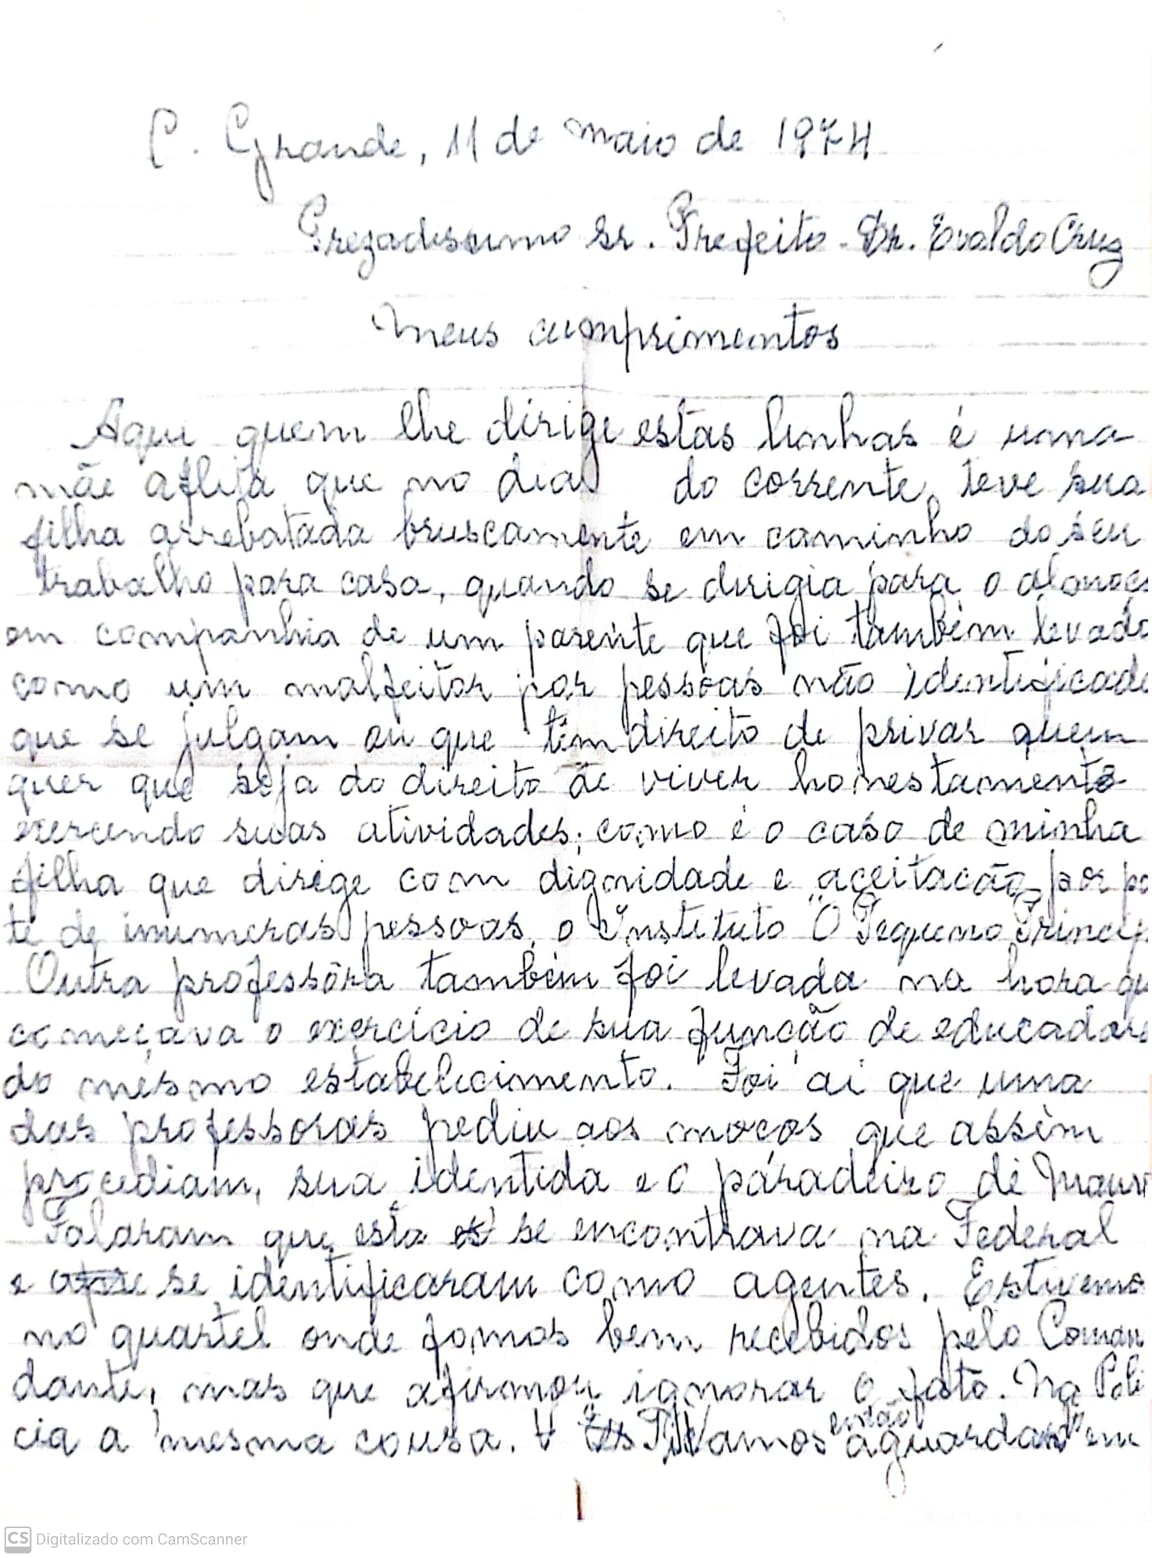 C. Grande, 11 de maio de 1974
Prezadissimo Sr. Prefeito - Dr. Evaldo Cruz
Meus cumprimentos
Aqui quem lhe dirige estas linhas é uma
mãe aflita que no dia do corrente, teve sua
filha arrebatada bruscamente em caminho do seu
trabalho para casa, quando se dirigia para o almoço
em companhia de um parente que foi também levado
como um malfeitor por pessoas não identificada
que se julgam ou que têm direito de privar quem
quer que seja do direito de viver honestamente
exercendo suas atividades, como é o caso de minha
filha que dirige com dignidade e aceitacão por pa
te de inumeras pessoas, o Instituto "O Pequeno Princip
Outra professôra também foi levada na hora qu
começava o exercicio de sua função de educadora
do mesmo estabelecimento. Foi aí que uma
das professoras pediu aos moços que assim
procediam, sua identida e o paradeiro de
Falaram que esta se encontrava na Federal
e se identificaram como agentes. Estivemo
no quartel onde fomos bem recebidos pelo Coman
dante, mas que afirmou ignorar o fato. Na Poli
cia a mesma cousa. então
aguardand em
CS Digitalizado com CamScanner